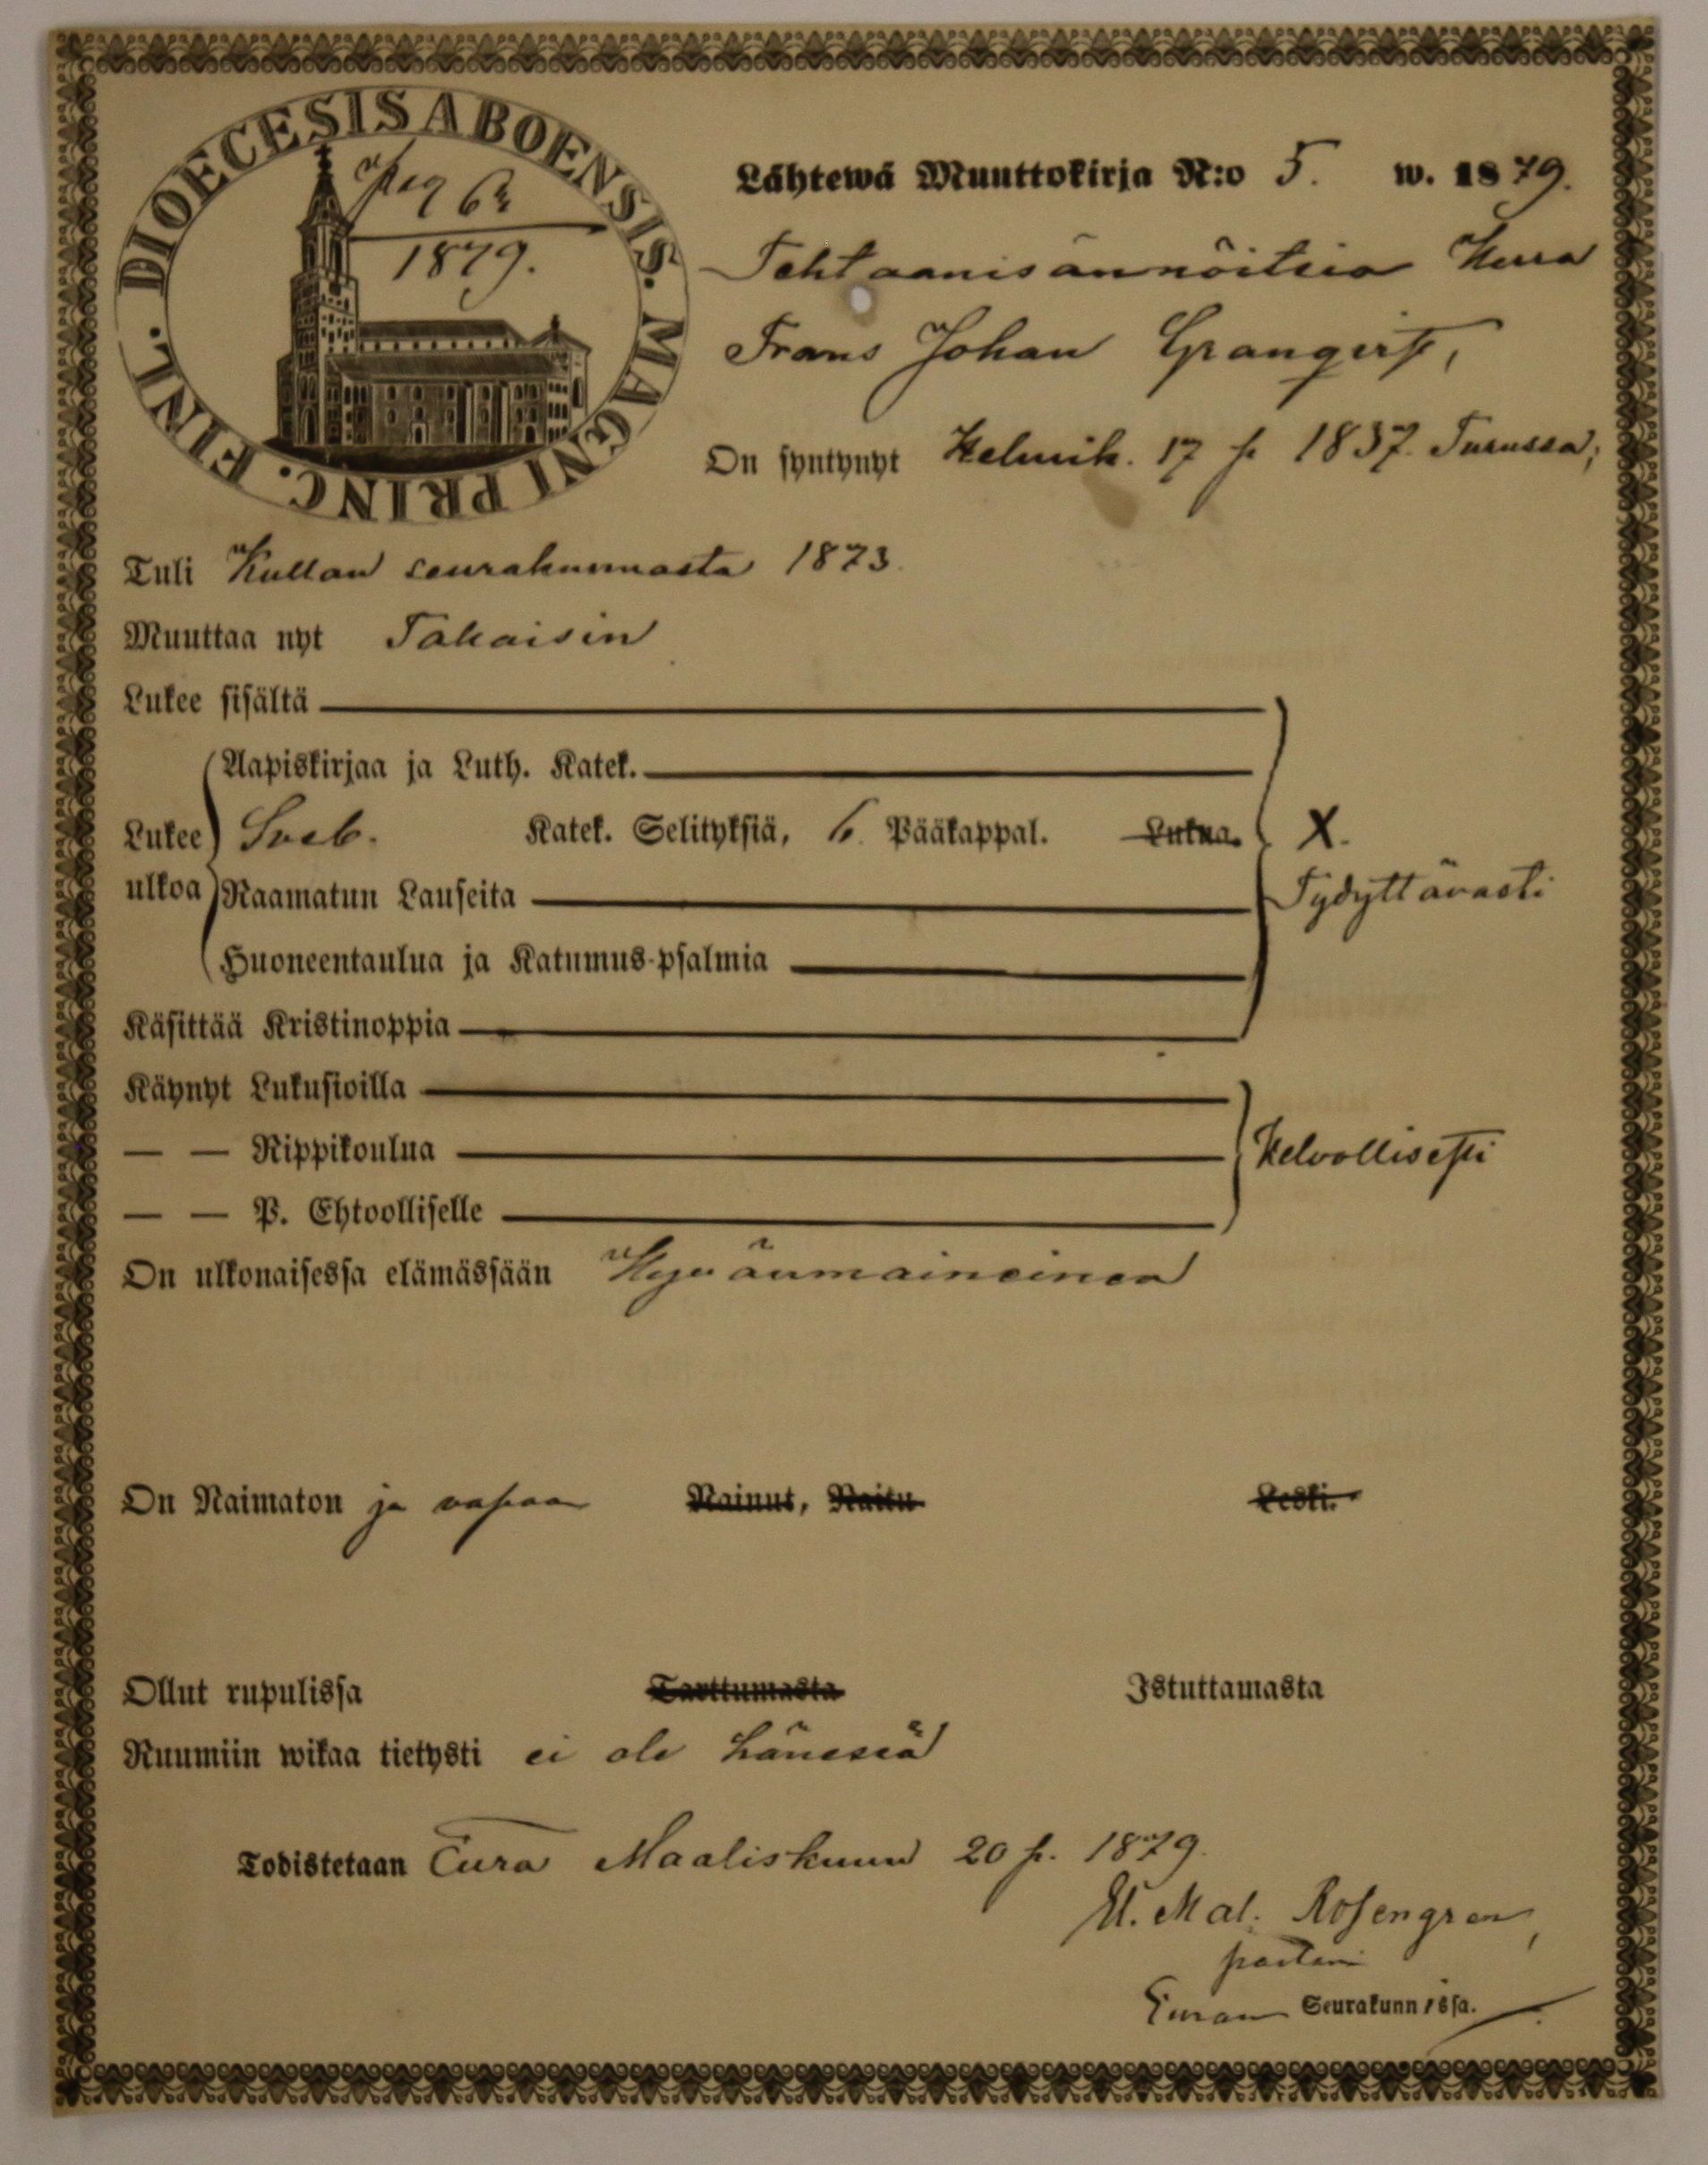 DIOECESIS ABOENSIS. MAGNI PRINC. FINL.
pag 62
1879.
Lähtewä Muuttokirja N:o 5. w. 1879.
Tehtaanisännöitsia Herra
Frans Johan Granqvist,
On syntynyt Helmik. 17 p 1837. Turussa;
Tuli Kullan seurakunnasta 1873.
Muuttaa nyt Takaisin
Lukee sisältä
Aapiskirjaa ja Luth. Katek.
Lukee Sveb. Katek. Selityksiä, 6. Pääkappal. Lukua. X.
ulkoa Raamatun Lauseita Tydyttävästi
Huoneentaulua ja Katumus-psalmia
Käsittää Kristinoppia
Käynyt Lukusioilla
— — Rippikoulua Kelvollisesti
— — P. Ehtoolliselle
On ulkonaisessa elämässään Hyvänmaineinen
On Naimaton ja vapaa Nainut, Naitu Leski.
Ollut rupulissa Tarttumasta Istuttamasta
Ruumiin wikaa tietysti ei ole hänessä
Todistetaan Eura Maaliskuun 20 p. 1879.
Mal. Rosengren,
Euran Seurakunnissa.